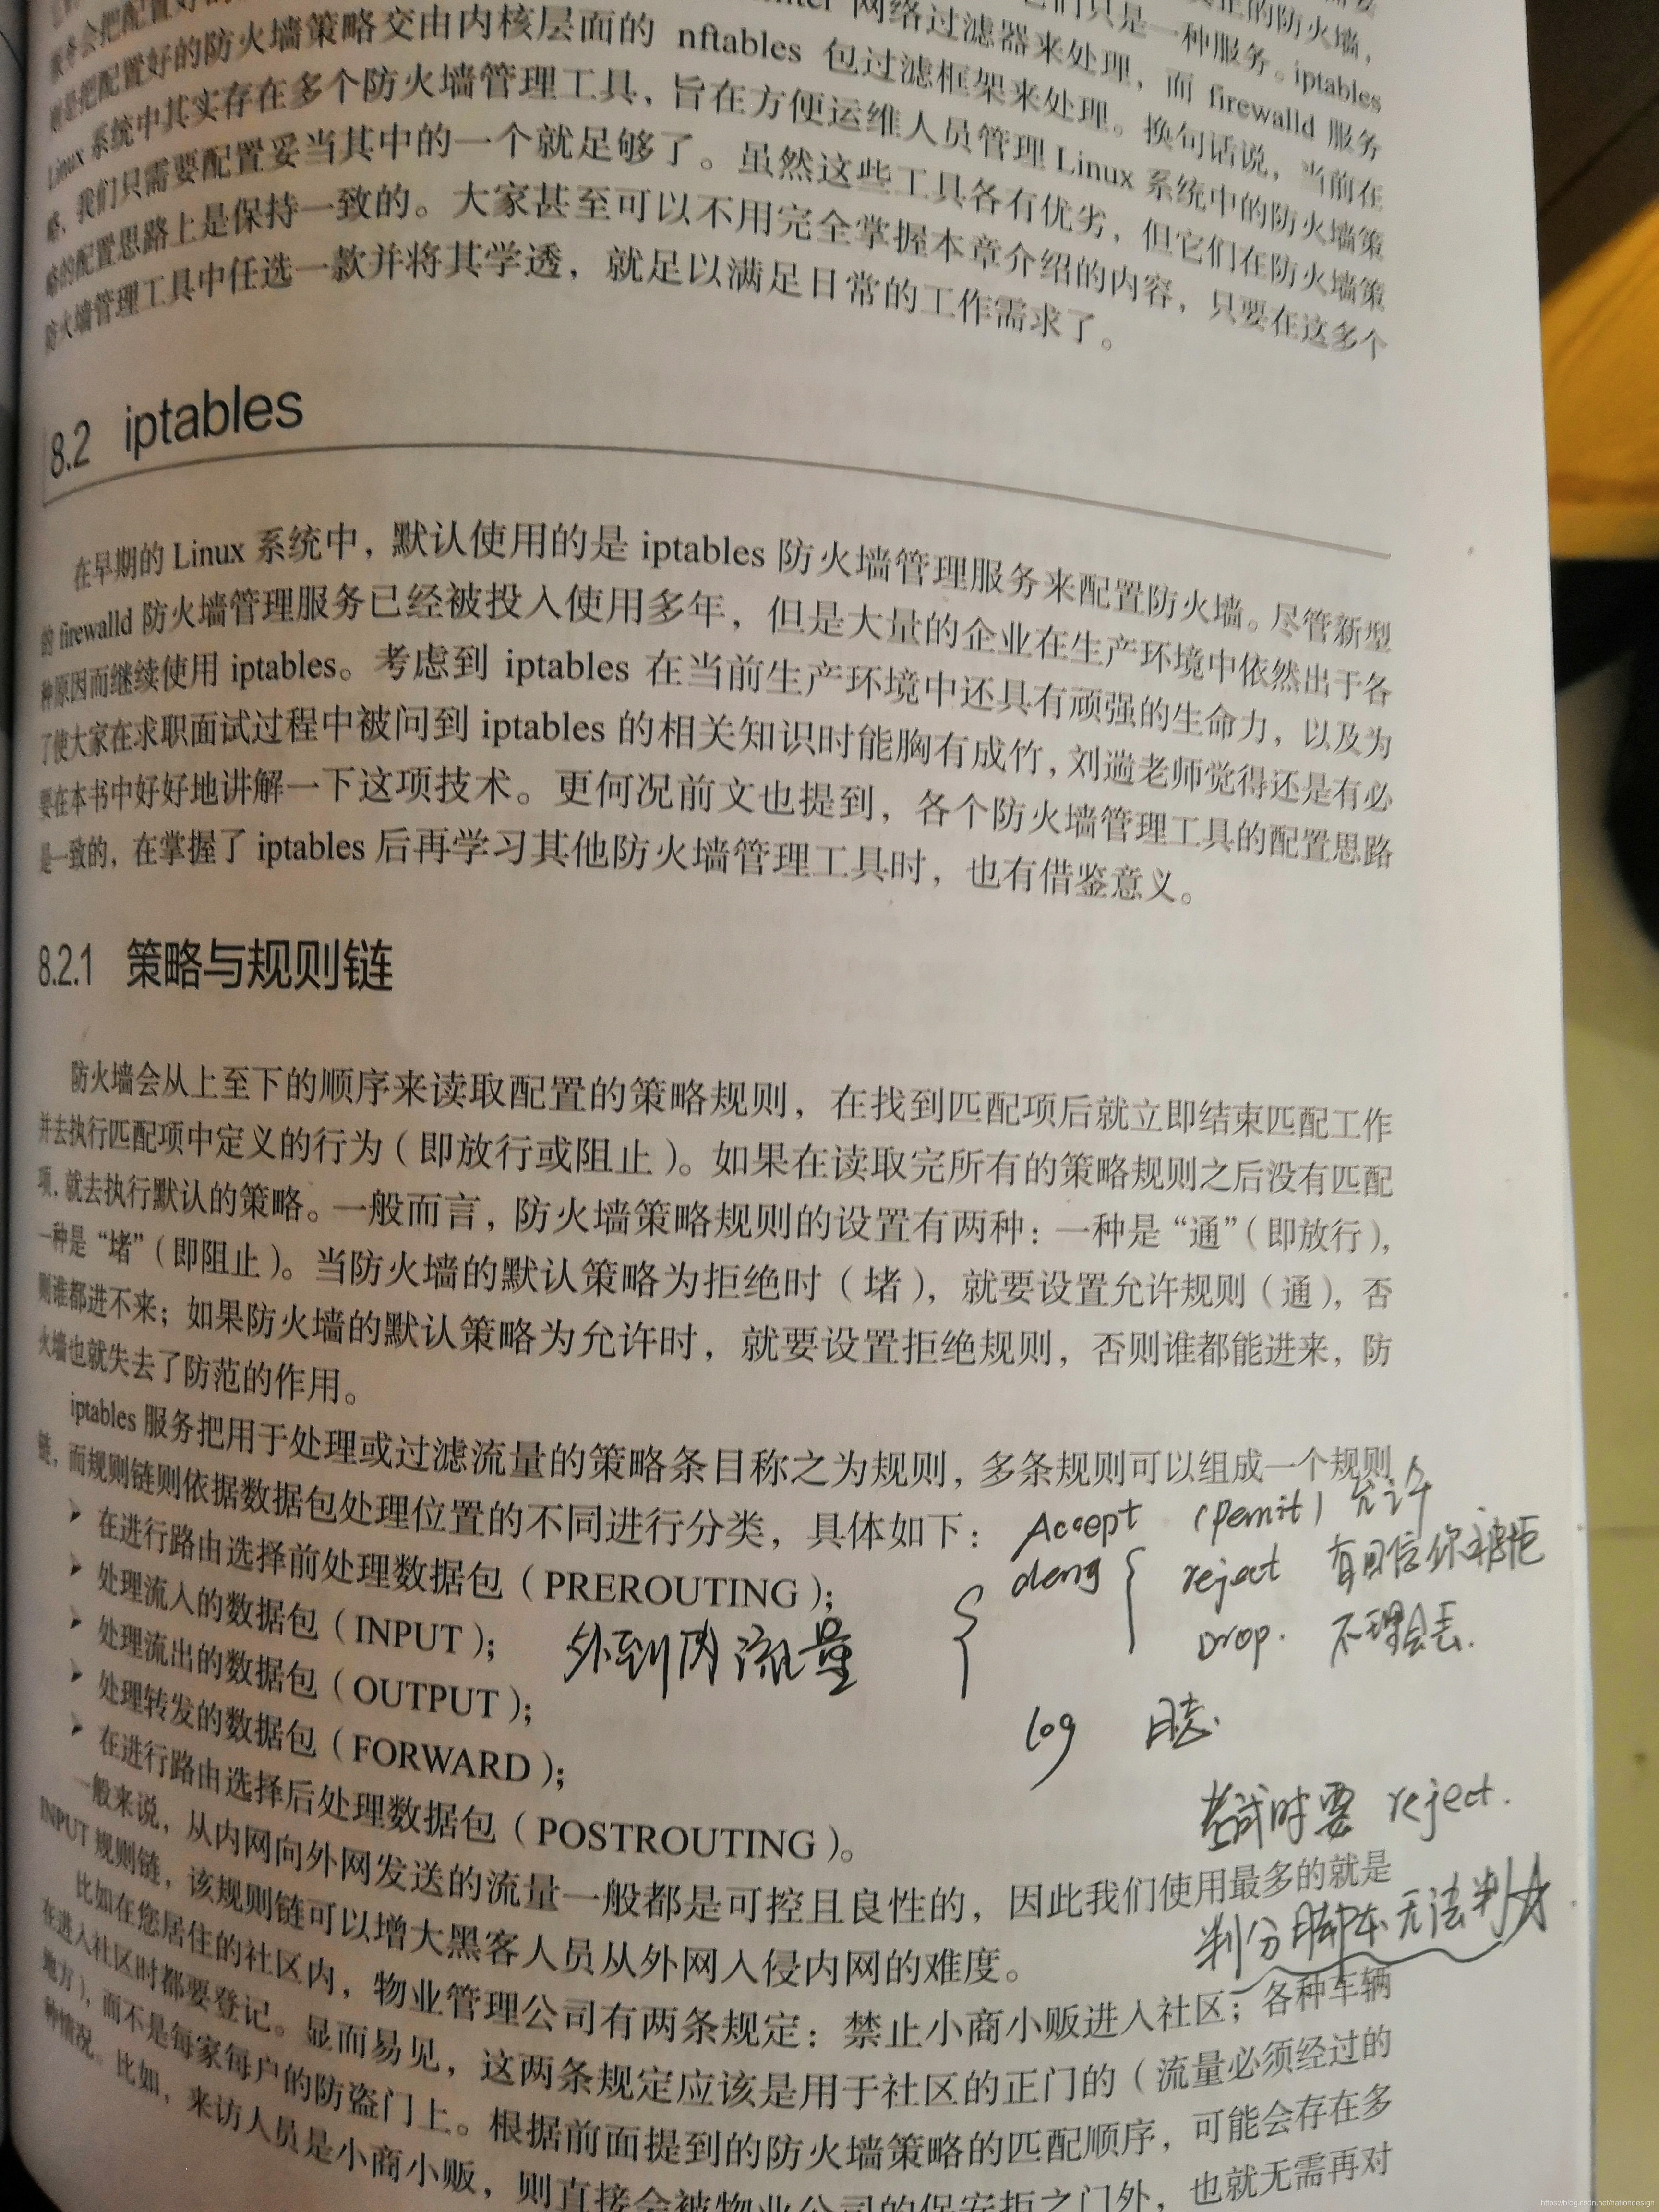 则是把配置好的防火墙策略交由内核层面的 nftables 包过滤框架来处理。换句话说，当前在
Linux 系统中其实存在多个防火墙管理工具，旨在方便运维人员管理 Linux 系统中的防火墙策
略，我们只需要配置妥当其中的一个就足够了。虽然这些工具各有优劣，但它们在防火墙策
略的配置思路上是保持一致的。大家甚至可以不用完全掌握本章介绍的内容，只要在这多个
防火墙管理工具中任选一款并将其学透，就足以满足日常的工作需求了。
8.2 iptables
在早期的 Linux 系统中，默认使用的是 iptables 防火墙管理服务来配置防火墙。尽管新型
的 firewalld 防火墙管理服务已经被投入使用多年，但是大量的企业在生产环境中依然出于各
种原因而继续使用 iptables。考虑到 iptables 在当前生产环境中还具有顽强的生命力，以及为
了使大家在求职面试过程中被问到 iptables 的相关知识时能胸有成竹，刘遄老师觉得还是有必
要在本书中好好地讲解一下这项技术。更何况前文也提到，各个防火墙管理工具的配置思路
是一致的，在掌握了 iptables 后再学习其他防火墙管理工具时，也有借鉴意义。
8.2.1 策略与规则链
防火墙会从上至下的顺序来读取配置的策略规则，在找到匹配项后就立即结束匹配工作
并去执行匹配项中定义的行为（即放行或阻止）。如果在读取完所有的策略规则之后没有匹配
项，就去执行默认的策略。一般而言，防火墙策略规则的设置有两种：一种是“通”（即放行），
一种是“堵”（即阻止）。当防火墙的默认策略为拒绝时（堵），就要设置允许规则（通），否
则谁都进不来；如果防火墙的默认策略为允许时，就要设置拒绝规则，否则谁都能进来，防
火墙也就失去了防范的作用。
iptables 服务把用于处理或过滤流量的策略条目称之为规则，多条规则可以组成一个规则
链，而规则链则依据数据包处理位置的不同进行分类，具体如下：
Accept (Permit) 允许
➤ 在进行路由选择前处理数据包（PREROUTING）；
deng reject 有回信你被拒
➤ 处理流入的数据包（INPUT）； 外到内流量
Drop. 不理会丢.
➤ 处理流出的数据包（OUTPUT）；
log 日志.
➤ 处理转发的数据包（FORWARD）；
➤ 在进行路由选择后处理数据包（POSTROUTING）。
考试时要 reject.
判分脚本无法判
一般来说，从内网向外网发送的流量一般都是可控且良性的，因此我们使用最多的就是
INPUT 规则链，该规则链可以增大黑客人员从外网入侵内网的难度。
比如在您居住的社区内，物业管理公司有两条规定：禁止小商小贩进入社区；各种车辆
在进入社区时都要登记。显而易见，这两条规定应该是用于社区的正门的（流量必须经过的
地方），而不是每家每户的防盗门上。根据前面提到的防火墙策略的匹配顺序，可能会存在多
种情况。比如，来访人员是小商小贩，则直接会被物业公司的保安拒之门外，也就无需再对
https://blog.csdn.net/nationdesign